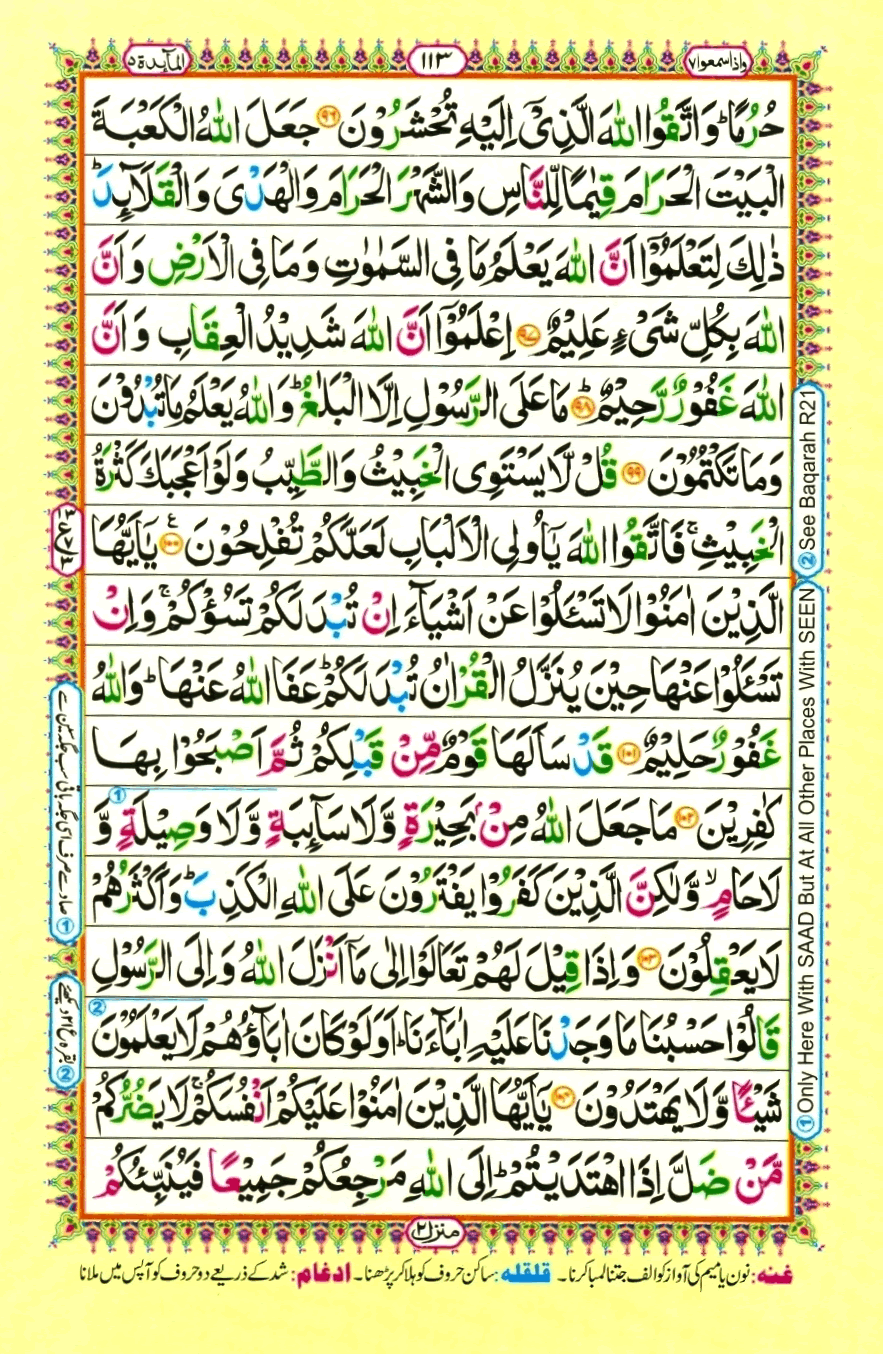 واذاسمعوا٧
١١٣
المآىِٕدة ٥
حُرُمًا ؕ وَاتَّقُوا اللّٰهَ الَّذِیْۤ اِلَیْهِ تُحْشَرُوْنَ ﴿۹۶﴾ جَعَلَ اللّٰهُ الْكَعْبَةَ
الْبَیْتَ الْحَرَامَ قِیٰمًا لِّلنَّاسِ وَالشَّهْرَ الْحَرَامَ وَالْهَدْیَ وَالْقَلَآىِٕدَ ؕ
ذٰلِكَ لِتَعْلَمُوْۤا اَنَّ اللّٰهَ یَعْلَمُ مَا فِی السَّمٰوٰتِ وَمَا فِی الْاَرْضِ وَاَنَّ
اللّٰهَ بِكُلِّ شَیْءٍ عَلِیْمٌ ﴿۹۷﴾ اِعْلَمُوْۤا اَنَّ اللّٰهَ شَدِیْدُ الْعِقَابِ وَاَنَّ
اللّٰهَ غَفُوْرٌ رَّحِیْمٌ ﴿۹۸﴾ؕ مَا عَلَی الرَّسُوْلِ اِلَّا الْبَلٰغُ ؕ وَاللّٰهُ یَعْلَمُ مَا تُبْدُوْنَ
وَمَا تَكْتُمُوْنَ ﴿۹۹﴾ قُلْ لَّا یَسْتَوِی الْخَبِیْثُ وَالطَّیِّبُ وَلَوْ اَعْجَبَكَ كَثْرَةُ
الْخَبِیْثِ ۚ فَاتَّقُوا اللّٰهَ یٰۤاُولِی الْاَلْبَابِ لَعَلَّكُمْ تُفْلِحُوْنَ ﴿۱۰۰﴾ یٰۤاَیُّهَا
الَّذِیْنَ اٰمَنُوْا لَا تَسْـَٔلُوْا عَنْ اَشْیَآءَ اِنْ تُبْدَ لَكُمْ تَسُؤْكُمْ ۚ وَاِنْ
تَسْـَٔلُوْا عَنْهَا حِیْنَ یُنَزَّلُ الْقُرْاٰنُ تُبْدَ لَكُمْ ؕ عَفَا اللّٰهُ عَنْهَا ؕ وَاللّٰهُ
غَفُوْرٌ حَلِیْمٌ ﴿۱۰۱﴾ قَدْ سَاَلَهَا قَوْمٌ مِّنْ قَبْلِكُمْ ثُمَّ اَصْبَحُوْا بِهَا
كٰفِرِیْنَ ﴿۱۰۲﴾ مَا جَعَلَ اللّٰهُ مِنْۢ بَحِیْرَةٍ وَّلَا سَآىِٕبَةٍ وَّلَا وَصِیْلَةٍ وَّ
لَا حَامٍ ۙ وَّلٰكِنَّ الَّذِیْنَ كَفَرُوْا یَفْتَرُوْنَ عَلَی اللّٰهِ الْكَذِبَ ؕ وَاَكْثَرُهُمْ
لَا یَعْقِلُوْنَ ﴿۱۰۳﴾ وَاِذَا قِیْلَ لَهُمْ تَعَالَوْا اِلٰی مَاۤ اَنْزَلَ اللّٰهُ وَاِلَی الرَّسُوْلِ
قَالُوْا حَسْبُنَا مَا وَجَدْنَا عَلَیْهِ اٰبَآءَنَا ؕ اَوَلَوْ كَانَ اٰبَآؤُهُمْ لَا یَعْلَمُوْنَ
شَیْـًٔا وَّلَا یَهْتَدُوْنَ ﴿۱۰۴﴾ یٰۤاَیُّهَا الَّذِیْنَ اٰمَنُوْا عَلَیْكُمْ اَنْفُسَكُمْ ۚ لَا یَضُرُّكُمْ
مَّنْ ضَلَّ اِذَا اهْتَدَیْتُمْ ؕ اِلَی اللّٰهِ مَرْجِعُكُمْ جَمِیْعًا فَیُنَبِّئُكُمْ
② See Baqarah R21
① Only Here With SAAD But At All Other Places With SEEN
① صاد سے صرف اسی جگہ باقی سب جگہ سین سے
② بقرہ ع ۲۱ دیکھئے
منزل ۲
غنه: نون یا میم کی آواز کو الف جتنا لمبا کرنا۔ قلقله: ساکن حروف کو ہلا کر پڑھنا۔ ادغام: شد کے ذریعے دو حروف کو آپس میں ملانا